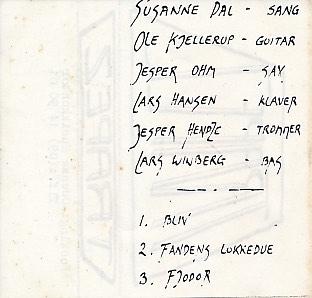 SUSANNE DAL - SANG
OLE KJELLERUP - GUITAR
JESPER OHM - SAX
LARS HANSEN - KLAVER
JESPER - TROMMER
LARS WINBERG - BAS
1. BLIV
2. FANDENS LOKKEDUE
3. FJODOR